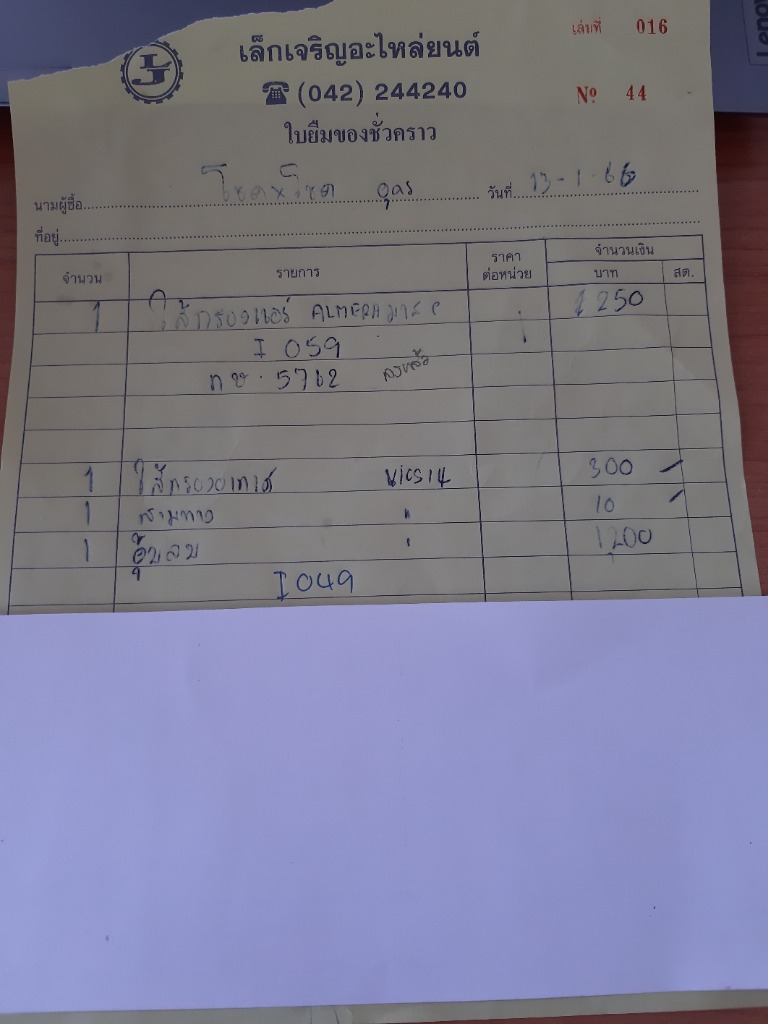 LJ
เล็กเจริญอะไหล่ยนต์
เล่มที่ 016
☎ (042) 244240
Nº 44
ใบยืมของชั่วคราว
นามผู้ซื้อ วันที่ 13-1-66
ที่อยู่
จำนวน รายการ ราคาต่อหน่วย จำนวนเงิน
บาท สต.
1 ไส้กรองแอร์ ALMERA 250
I 059
ทษ. 5762
1 ไส้กรองอากาศ 300
1 สามทาง " 10
1 " 1200
I 049
Leno